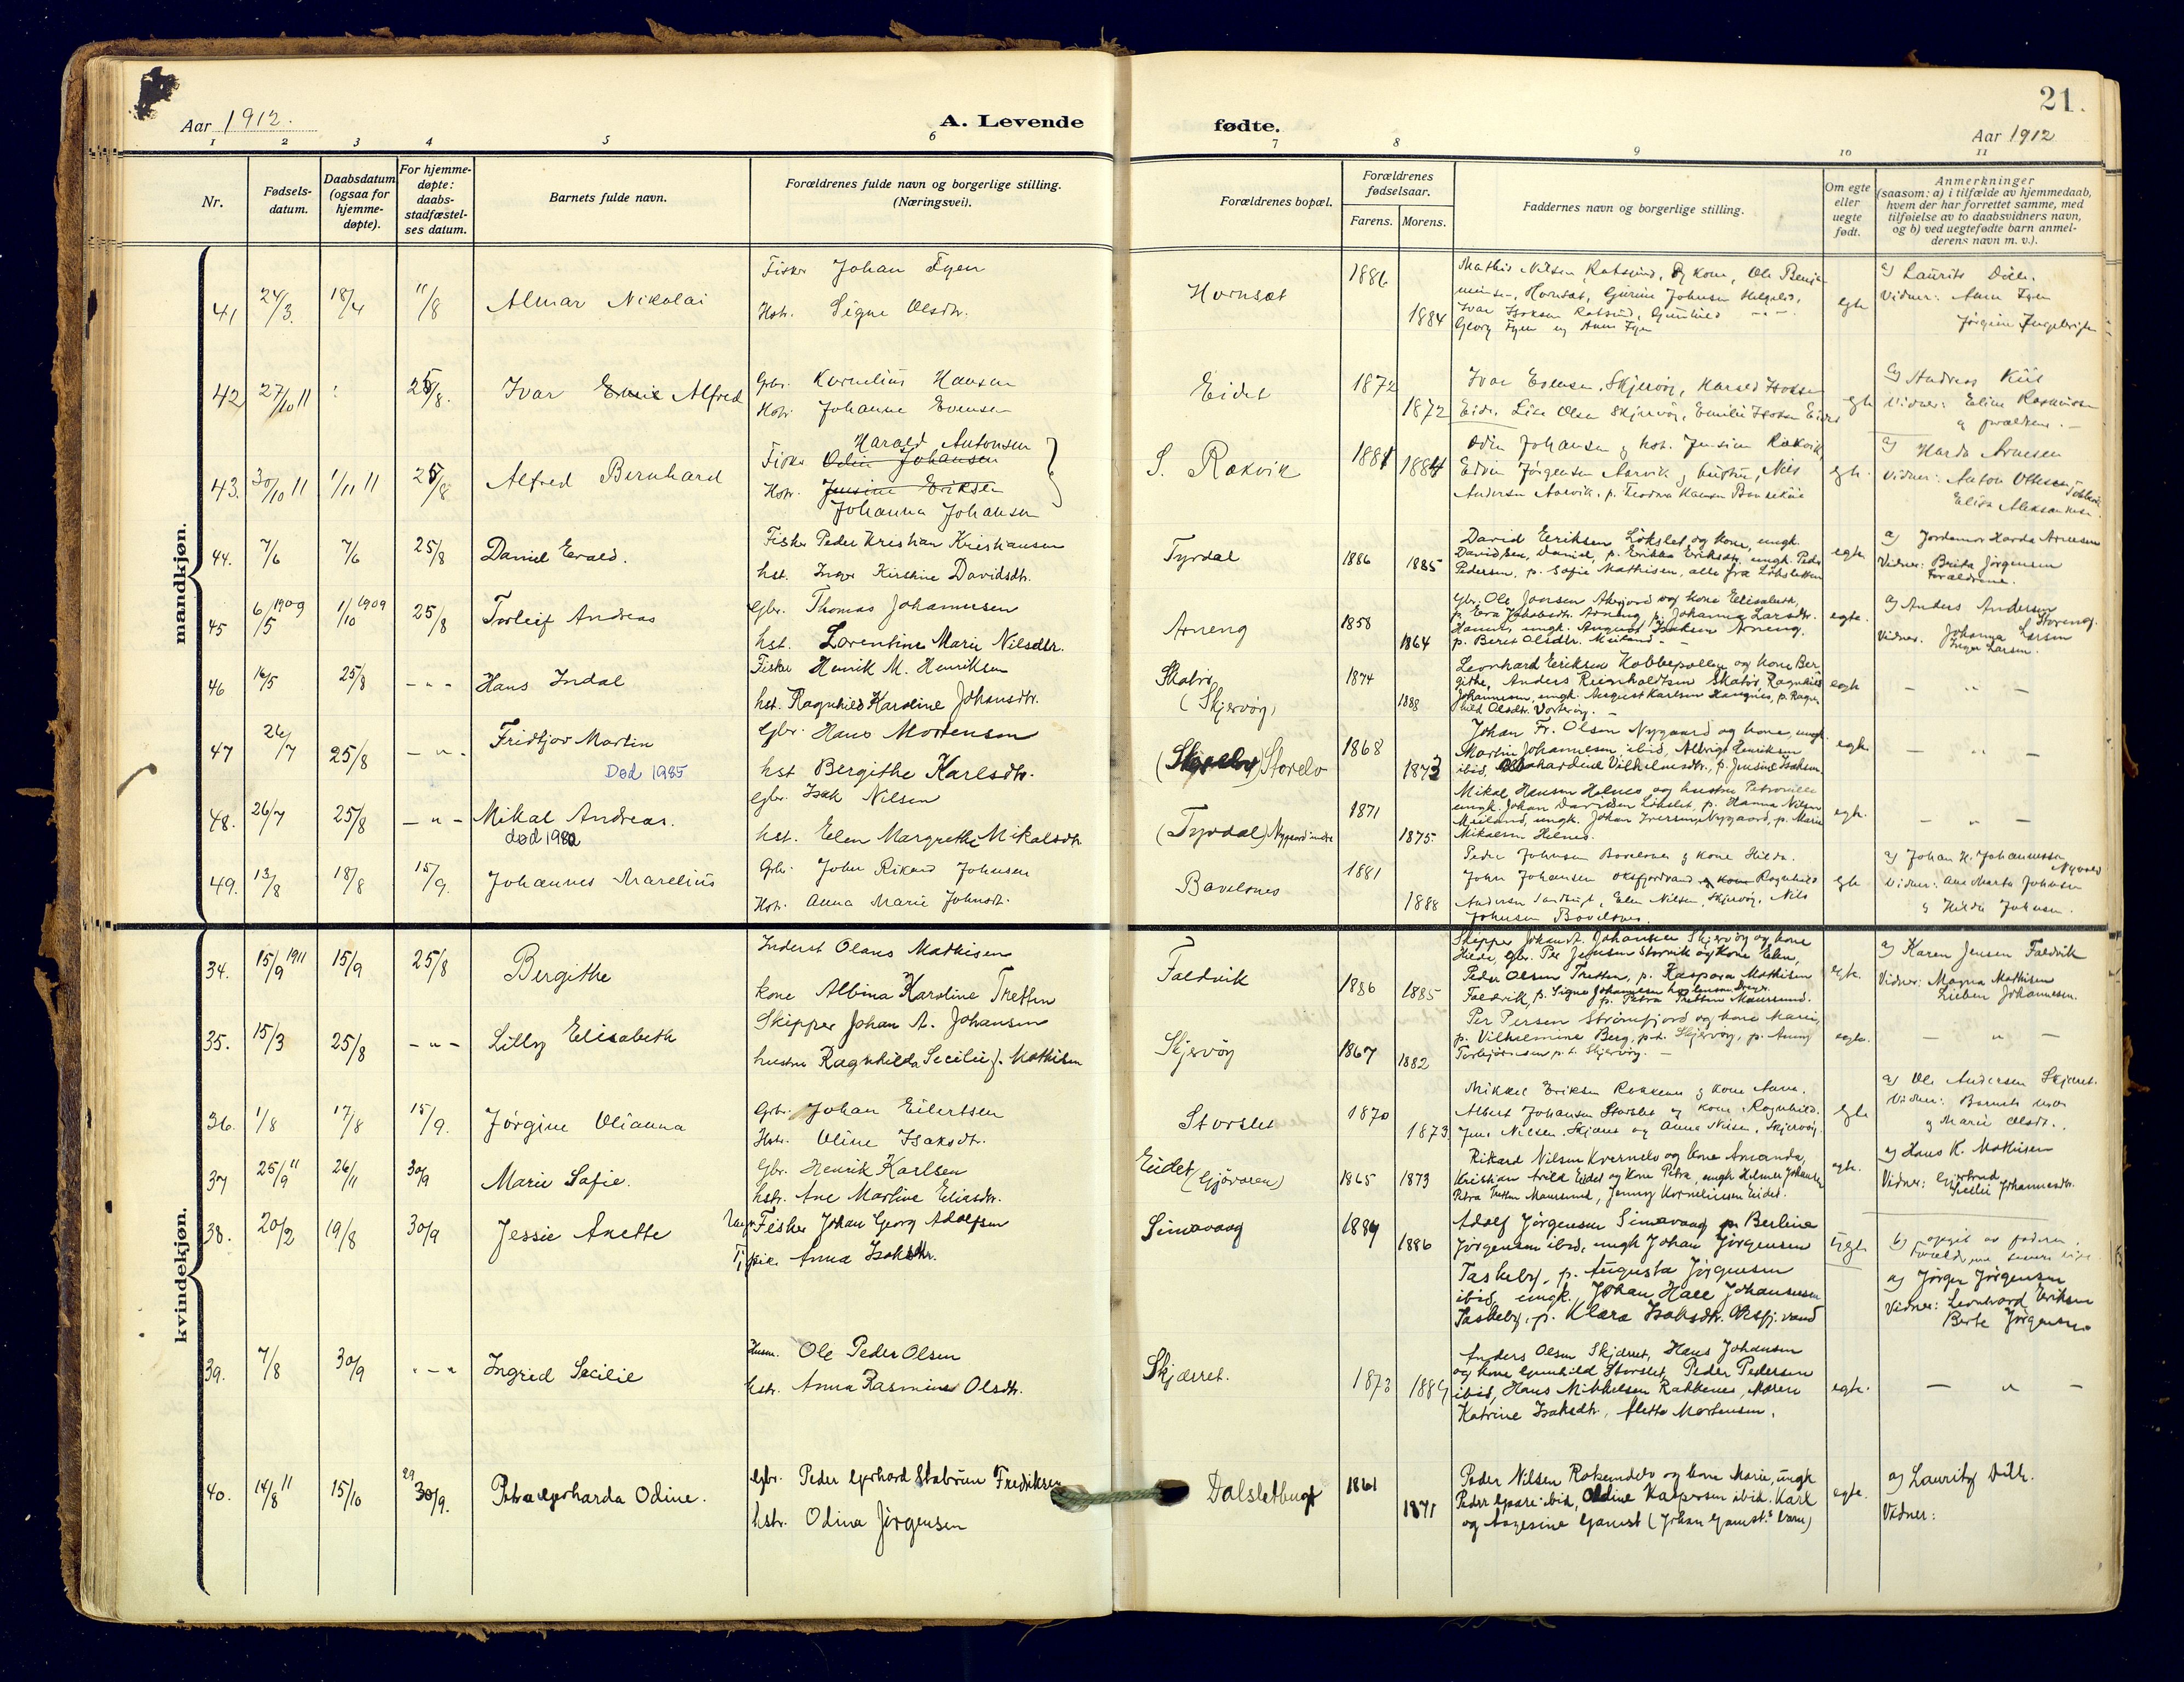 Aar 1912.
A. Levende
fødte.
21.
Aar 1912
1 2 3 4 5 6 7 8 9 10 11
Nr.
Fødsels-
datum.
Daabsdatum
(ogsaa for
hjemme-
døpte).
For hjemme-
døpte:
daabs-
stadfæstel-
ses datum.
Barnets fulde navn.
Forældrenes fulde navn og borgerlige stilling.
(Næringsvei).
Forældrenes bopæl.
Forældrenes
fødselsaar.
Farens. Morens.
Faddernes navn og borgerlige stilling.
Om egte
eller
uegte
født.
Anmerkninger
(saasom: a) i tilfælde av hjemmedaab,
hvem der har forrettet samme, med
tilføielse av to daabsvidners navn,
og b) ved uegtefødte barn anmel-
derens navn m. v.).
mandkjøn.
41 24/3. 18/4 11/8 Almar Nikolai
Fisker Johan Fyen
Hstr. Signe Olsdtr.
Hornsæt 1886 1884
Georg Fyen og Anna Fyen
egte
a) Laurits Dill.
Vidner: Anna Fyen
Jørgine Ingebrigtsen
42 27/10 11 25/8. Ivar Emil Alfred
Gbr. Kornelius Hansen
Hstr. Johanne Evensen
Eidet 1872 1872
Ivar Evensen, Skjervøy, Harald Hansen
Eidet, Lise Olsen Skjervøy, Emilie Hansen Eidet
egte
a) Andreas Kiil
Vidner: Eline Rasmussen
og forældrene.
43. 30/10 11 1/11 11 25/8 Alfred Bernhard
Harald Antonsen
Fisker Odin Johansen
Hstr. Jensine Eriksen
Johanna Johansen
S. Rakvik 1881 1884
Odin Johansen og hst. Jensine Rakvik
Edvin Jørgensen Aarvik og hustru, Nils
Andersen Aarvik, p. Teodora Hansen
egte.
a) Harda Arnesen
Vidner: Anton Ottesen
Elida Aleksandersen.
44. 7/6 7/6 25/8 Daniel Evald.
Fisker Peder Kristian Kristiansen
hst. Inger Kirstine Davidsdtr.
Tyrdal 1886 1885
David Eriksen Løkslet og kone, ungk.
Davidsen, Daniel, p. Erikka Eriksdtr, ungk. Peder
Pedersen, p. Sofie Mathisen, alle fra Løksletten
egte.
a) Jordemor Harda Arnesen
Vidner: Brita Jørgensen
Forældrene.
45 6/5 1909 1/10 1909 25/8 Torleif Andreas
Gbr. Thomas Johannesen
hst. Lorentine Marie Nilsdtr.
Arneng 1858 1864
Gbr. Ole Jonsen Akerjord og kone Elisabeth,
p. Eva Jakobsdtr. Arneng p. Johanna Larsdtr.
Hanna, ungk. August Isaksen Arneng.
p. Beret Olsdtr. Meiland
egte.
a) Anders Andersen
Storeng.
Vidner. Johanna Larsen
Inger Larsen.
46 16/5 25/8 - " - Hans Indal
Fisker Henrik M. Henriksen
hst. Ragnhild Karoline Johansdtr.
Skatør
(Skjervøy)
1874 1888
Leonhard Eriksen Kobbepollen og kone Ber-
githe, Anders Reinholdtsen Skatør, Ragnhild
Johannesen, ungk. August Karlsen Haugnes, p. Ragn-
hild Olsdtr. Vorterøy.
egte
- " -
47 26/7 25/8 - " - Fridtjov Martin
Død 1985
Gbr. Hans Mortensen
hst Bergithe Karlsdtr.
(Skjerelv) Storelv 1868 1873
Johan Fr. Olsen Nygaard og kone, ungk.
Martin Johannesen ibid, Albrigt Henriksen
ibid, Vilhelmsdtr., p. Jensine Isaksen.
egte
- " -
48. 26/7 25/8 - " - Mikal Andreas.
død 1982
Gbr. Isak Nilsen
hst. Elen Margrethe Mikalsdtr.
(Tyrdal) Nygaard indre 1871 1875.
Mikal Hansen Hilnes og hustru Petronille
ungk. Johan Davidsen Løkslet, p. Hanna Nilsen
Meiland, ungk. Johan Iversen, Nygaard, p. Marie
Mikalsen Hilnes.
egte.
- " -
49. 13/8 18/8 15/9. Johannes Marelius
Gbr. John Rikard Johnsen
Hst. Anna Marie Johnsdt.
Bavelsnes 1881 1888
Peder Johnsen Bavelsnes og kone Hilda.
John Johansen Oksfjordvand og kone Ragnhild
Andersen Sandbugt, Elen Nilsen, Skjervøy, Nils
Johnsen Bavelsnes.
egte
a) Johan H. Johannessen
Vidner: Ane Marta Johnsen
og Hilda Johnsen.
kvindekjøn.
34. 15/9 1911 15/9 25/8 Bergithe
Inderst Olaus Mathisen
kone Albina Karoline Tretten
Faldvik 1886 1885
Skipper Johan A. Johansen Skjervøy og kone
Hilde, Gbr. Per Jensen Storvik og kone Elen,
Peder Olsen Tretten, p. Kaspara Mathisen
Faldvik, p. Signe Johannesen
p. Petra Tretten Maursund.
egte.
a) Karen Jensen Faldvik
Vidner: Magna Mathisen
Johannesen.
35. 15/3 25/8 - " - Lilly Elisabeth
Skipper Johan A. Johansen
hustru Ragnhilda Secilie f. Mathisen
Skjervøy 1867 1882
Per Persen Strømfjord og kone Marie,
p. Vilhelmine Berg, p.t. Skjervøy, p. Anny
Torbjørnsen p.t. Skjervøy.
egte.
- " -
36. 1/8 17/8 15/9. Jørgine Olianna
Gbr. Johan Eilertsen
Hstr. Oline Isaksdtr.
Storslet 1870 1873
Mikkel Eriksen Rakkenes og kone Anna.
Albert Johansen Storslet og kone Ragnhild.
Jens Nilsen, Skjæret og Anna Nilsen, Skjervøy.
egte
a) Ole Andersen Skjæret.
Vidner: Barnets mor
og Marie Olsdt.
37 25/9 11 26/11 30/9 Marie Sofie.
Gbr. Henrik Karlsen
hstr. Ane Martine Eliasdtr.
Eidet (Gjøvaren) 1865 1873
Rikard Nilsen Kvernelv og kone Amanda,
Kristian Arild Eidet og kone Petra, ungk Hilmer Johansen
Petra Tretten Maursund, Jenny Korneliussen Eidet.
egte.
a) Hans K. Mathisen
Vidner: Gjertrud
Secilie Johannesdtr.
38. 20/2 19/8 30/9 Jessie Anette
Ungk. Fisker Johan Georg Adolfsen
Pike Anna Isaksdtr.
Simavaag 1889 1886
Adolf Jørgensen Simavaag p. Berline
Jørgensen ibid, ungk Johan Jørgensen
Taskeby, p. Augusta Jørgensen
ibid, ungk. Johan Hall Johannesen
Taskeby, p. Klara Isaksdtr. Oksfj. vand
Uegte
b) opgit av faderen.
a) Jørgen Jørgensen
Vidner: Leonhard Eriksen
Berte Jørgensen
39. 7/8 30/9 - " - Ingrid Secilie
Husm. Ole Peder Olsen
hstr. Anna Rasmine Olsdtr.
Skjæret. 1873 1889
Anders Olsen Skjæret, Hans Johansen
og kone Gunhild Storslet, Peder Pedersen
ibid, Hans Mikkelsen Rakkenes, Maren
Katrine Isaksdtr., Aletta Mortensen.
egte.
- " -
40. 14/8 11 15/10 29 30/9. Petra Gerharda Odine.
Gbr. Peder Gerhard Stabrun Fredriksen
hstr. Odina Jørgensen
Dalsletbugt 1861 1871
Peder Nilsen Rotsundelv og kone Marie, ungk
Peder Gaare ibid, Odine Kaspersen ibid. Karl
og Aagesine Gamst (Johan Gamst.s barn)
egte.
a) Lauritz Dill.
Vidner: